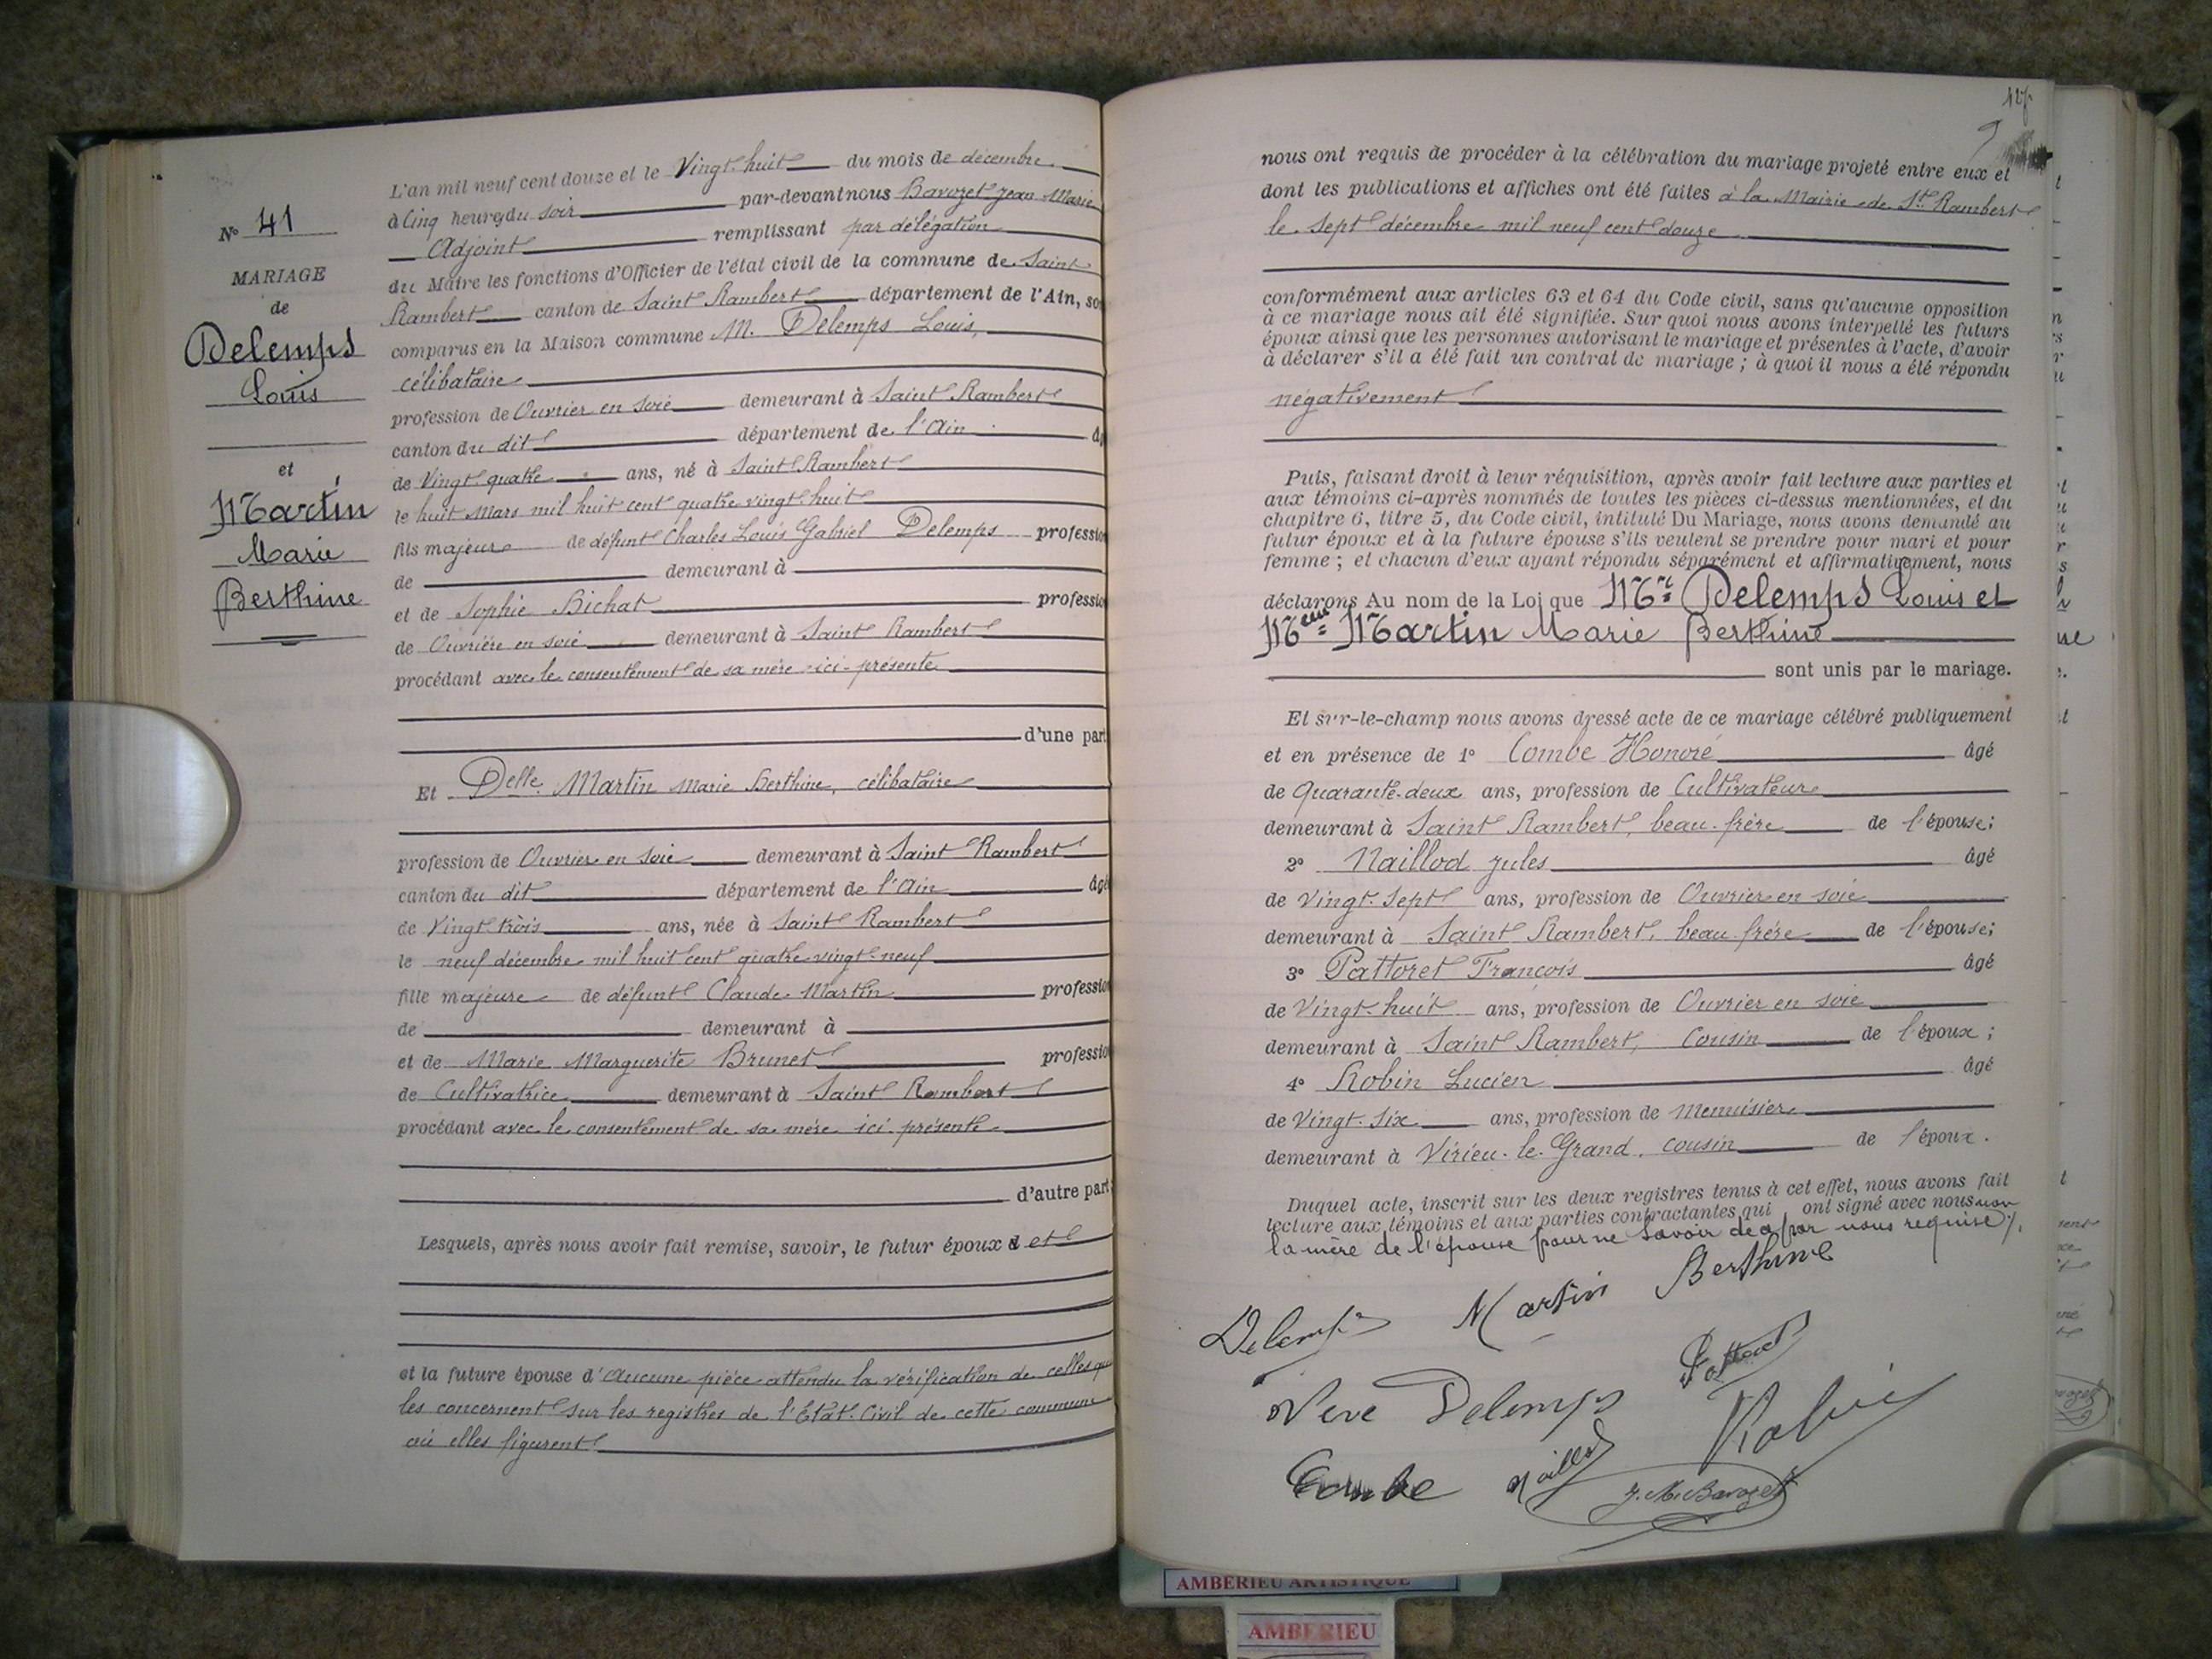 N° 41
MARIAGE
de
Delemps
Louis
et
Martin
Marie
Berthine
L'an mil neuf cent douze et le Vingt-huit du mois de décembre
à Cinq heures du soir par-devant nous Bavozet Jean Marie
Adjoint remplissant par délégation
du Maire les fonctions d'Officier de l'état civil de la commune de Saint
Rambert canton de Saint Rambert département de l'Ain, so
comparus en la Maison commune M. Delemps Louis,
célibataire
profession de Ouvrier en soie demeurant à Saint Rambert
canton du dit département de l'Ain
de Vingt-quatre ans, né à Saint Rambert
le huit Mars mil huit cent quatre vingt-huit
fils majeur de défunt Charles Louis Gabriel Delemps professio
de demeurant à
et de Sophie Bichat professio
de Ouvrière en soie demeurant à Saint Rambert
procédant avec le consentement de sa mère ici-présente
d'une part
Et Delle Martin Marie Berthine, célibataire
profession de Ouvrier en soie demeurant à Saint Rambert
canton du dit département de l'Ain âgé
de Vingt trois ans, née à Saint Rambert
le neuf décembre mil huit cent quatre vingt-neuf
fille majeure de défunt Claude Martin professio
de demeurant à
et de Marie Marguerite Brunet professio
de Cultivatrice demeurant à Saint Rambert
procédant avec le consentement de sa mère ici présente
d'autre part
Lesquels, après nous avoir fait remise, savoir, le futur époux et
et la future épouse d'Aucune pièce attendu la vérification de celles qui
les concernent sur les registres de l'Etat-Civil de cette commune
où elles figurent
nous ont requis de procéder à la célébration du mariage projeté entre eux et
dont les publications et affiches ont été faites à la Mairie de St Rambert
le Sept décembre mil neuf cent douze
conformément aux articles 63 et 64 du Code civil, sans qu'aucune opposition
à ce mariage nous ait été signifiée. Sur quoi nous avons interpellé les futurs
époux ainsi que les personnes autorisant le mariage et présentes à l'acte, d'avoir
à déclarer s'il a été fait un contrat de mariage ; à quoi il nous a été répondu
négativement
Puis, faisant droit à leur réquisition, après avoir fait lecture aux parties et
aux témoins ci-après nommés de toutes les pièces ci-dessus mentionnées, et du
chapitre 6, titre 5, du Code civil, intitulé Du Mariage, nous avons demandé au
futur époux et à la future épouse s'ils veulent se prendre pour mari et pour
femme ; et chacun d'eux ayant répondu séparément et affirmativement, nous
déclarons Au nom de la Loi que Mr Delemps Louis et
Melle Martin Marie Berthine
sont unis par le mariage.
Et sur-le-champ nous avons dressé acte de ce mariage célébré publiquement
et en présence de 1° Combe Honoré âgé
de Quarante-deux ans, profession de Cultivateur
demeurant à Saint Rambert, beau-frère de l'épouse ;
2° Naillod Jules âgé
de Vingt-Sept ans, profession de Ouvrier en soie
demeurant à Saint Rambert, beau-frère de l'épouse ;
3° Pattoret François âgé
de Vingt-huit ans, profession de Ouvrier en soie
demeurant à Saint Rambert, Cousin de l'époux ;
4° Robin Lucien âgé
de Vingt-Six ans, profession de Menuisier
demeurant à Virieu-le-Grand, cousin de l'époux.
Duquel acte, inscrit sur les deux registres tenus à cet effet, nous avons fait
lecture aux témoins et aux parties contractantes qui ont signé avec nous non
la mère de l'épouse pour ne savoir de a par nous requise
Delemps Martin Berthine
Veve Delemps Pattoret
Robin
Combe Naillod J. M. Bavozet
AMBERIEU ARTISTIQUE
AMBERIEU